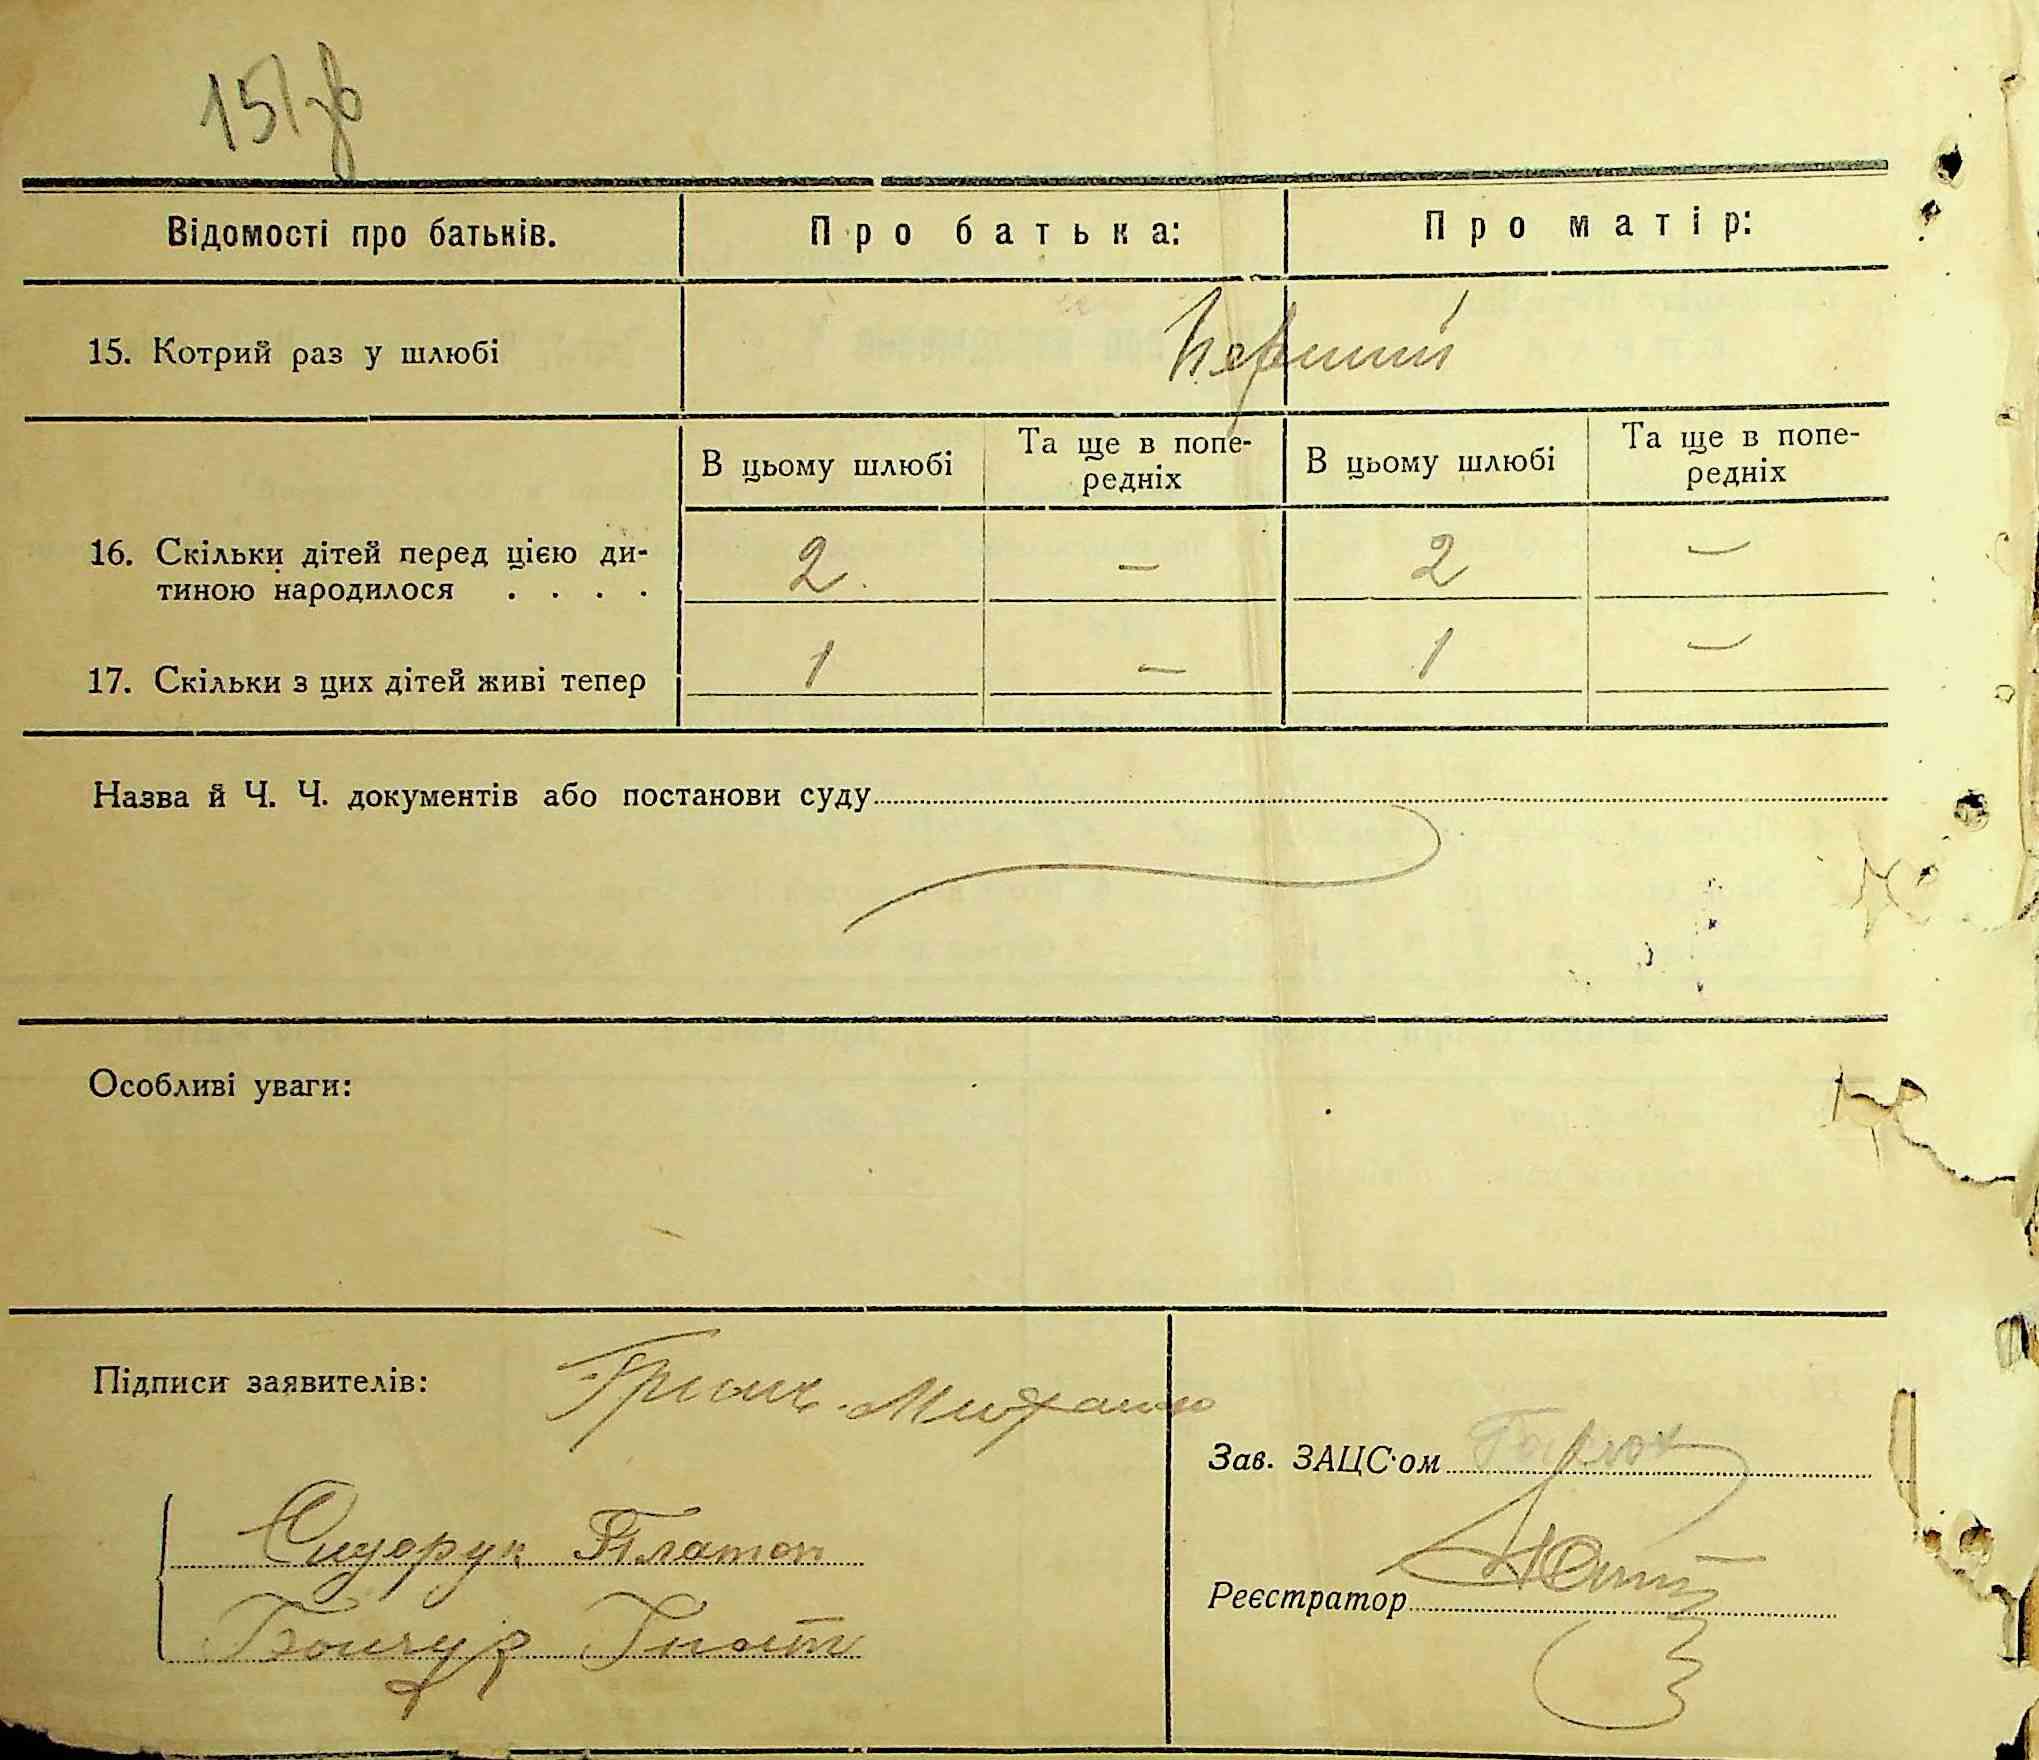 151зв
Відомості про батьків. Про батька: Про матір:
15. Котрий раз у шлюбі Перший
В цьому шлюбі Та ще в попе- В цьому шлюбі Та ще в попе-
редніх редніх
16. Скільки дітей перед цією ди-
тиною народилося . . . . 2 — 2 —
17. Скільки з цих дітей живі тепер 1 — 1 —
Назва й Ч. Ч. документів або постанови суду
Особливі уваги:
Підписи заявителів: Михайло
Зав. ЗАЦС·ом
Сидорук Платон
Реєстратор
Гнат